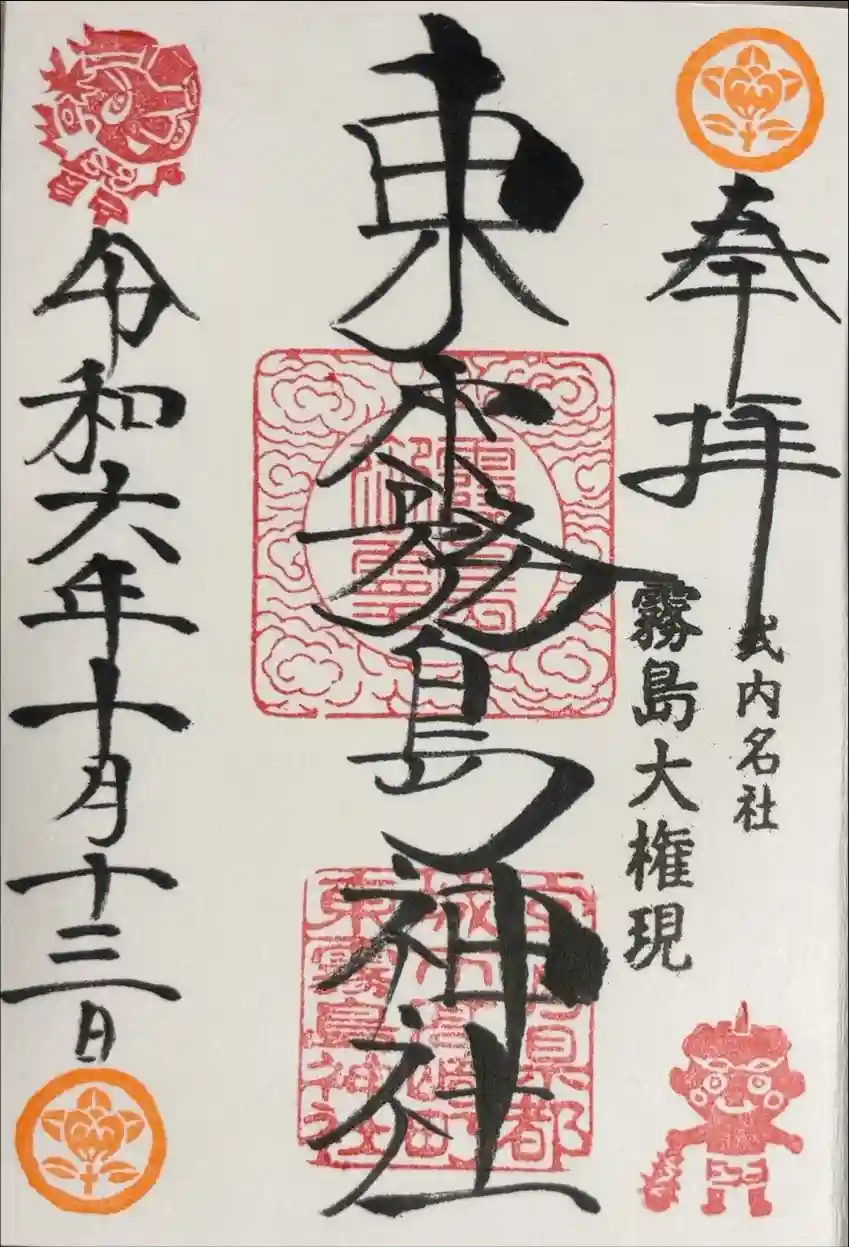 奉拝
式内名社
霧島大権現
東霧島神社
宮崎県都
城市高崎町
東霧島神社
令和六年十月十三日